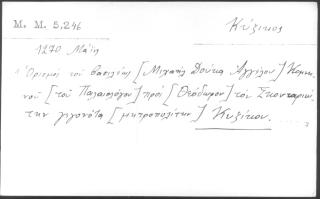 M. M. 5,246
Κύζικος
1270 Μάϊ
Ὁρισμὸς τοῦ βασιλέως [Μιχαὴλ Δούκα Ἀγγέλου] Κομνη
νοῦ [τοῦ Παλαιολόγου] πρὸς [Θεόδωρον] τὸν Σκουταριώ
την γεγονότα [μητροπολίτην] Κυζίκου.